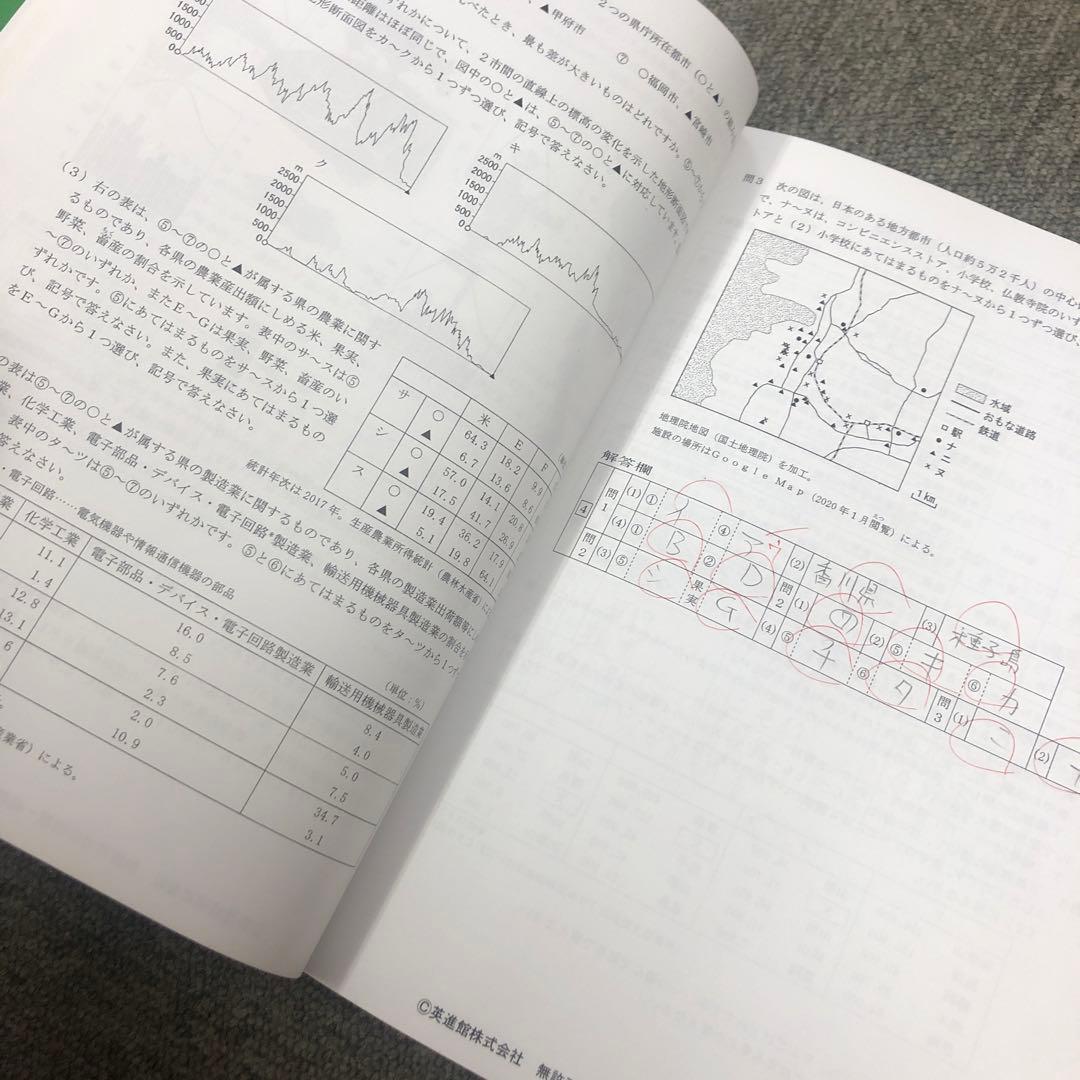 2つの県庁所在都市（○と▲）の
べたとき、最も差が大きいものはどれですか。⑤～⑦から
▲甲府市　⑦　○福岡市、▲宮崎市
ずれかについて、2市間の直線上の標高の変化を示した地形断面図
距離はほぼ同じで、図中の○と▲は、⑤～⑦の○と▲に対応しています。
形断面図をカ～クから1つずつ選び、記号で答えなさい。
1500
1000
500
0
キ
m
2500
2000
1500
1000
500
0
ク
m
2500
2000
1500
1000
500
0
(3) 右の表は、⑤～⑦の○と▲が属する県の農業に関す
るものであり、各県の農業産出額にしめる米、果実、
野菜、畜産の割合を示しています。表中のサ～スは⑤
～⑦のいずれか、またE～Gは果実、野菜、畜産のい
ずれかです。⑤にあてはまるものをサ～スから1つ選
び、記号で答えなさい。また、果実にあてはまるもの
をE～Gから1つ選び、記号で答えなさい。
米 E F
サ ○ 64.3 18.2 9.9
▲ 6.7 13.6 8.6
シ ○ 57.0 14.1 20.8
▲ 17.5 41.7 26.9
ス ○ 19.4 36.2 17.9
▲ 5.1 19.8 64.1
統計年次は2017年。生産農業所得統計（農林水産省）に
の表は⑤～⑦の○と▲が属する県の製造業に関するものであり、各県の製造業出荷額等に
業、化学工業、電子部品・デバイス・電子回路*製造業、輸送用機械器具製造業の割合を
表中のタ～ツは⑤～⑦のいずれかです。⑤と⑥にあてはまるものをタ～ツから1つ
答えなさい。
電子回路……電気機器や情報通信機器の部品
（単位：%）
業 化学工業 電子部品・デバイス・電子回路製造業 輸送用機械器具製造業
11.1 16.0 8.4
1.4 8.5 4.0
12.8 7.6 5.0
13.1 2.3 7.5
6 2.0 34.7
10.9 3.1
業省）による。
問3　次の図は、日本のある地方都市（人口約5万2千人）の中心
で、ナ～ヌは、コンビニエンスストア、小学校、仏教寺院のいず
トアと（2）小学校にあてはまるものをナ～ヌから1つずつ選び、
水域
おもな道路
鉄道
駅
ナ
ニ
ヌ
1km
地理院地図（国土地理院）を加工。
施設の場所はGoogle Map（2020年1月閲覧）による。
解答欄
4 問1 (1) ① ④ (2) 香川県 (3) 種子島
(4) ① B ② D 問2 (1) ⑦ (2) ⑤ キ ⑥ カ
問2 (3) ⑤ シ 果実 G (4) ⑤ チ ⑥ タ 問3 (1) ニ (2)
©英進館株式会社　無許